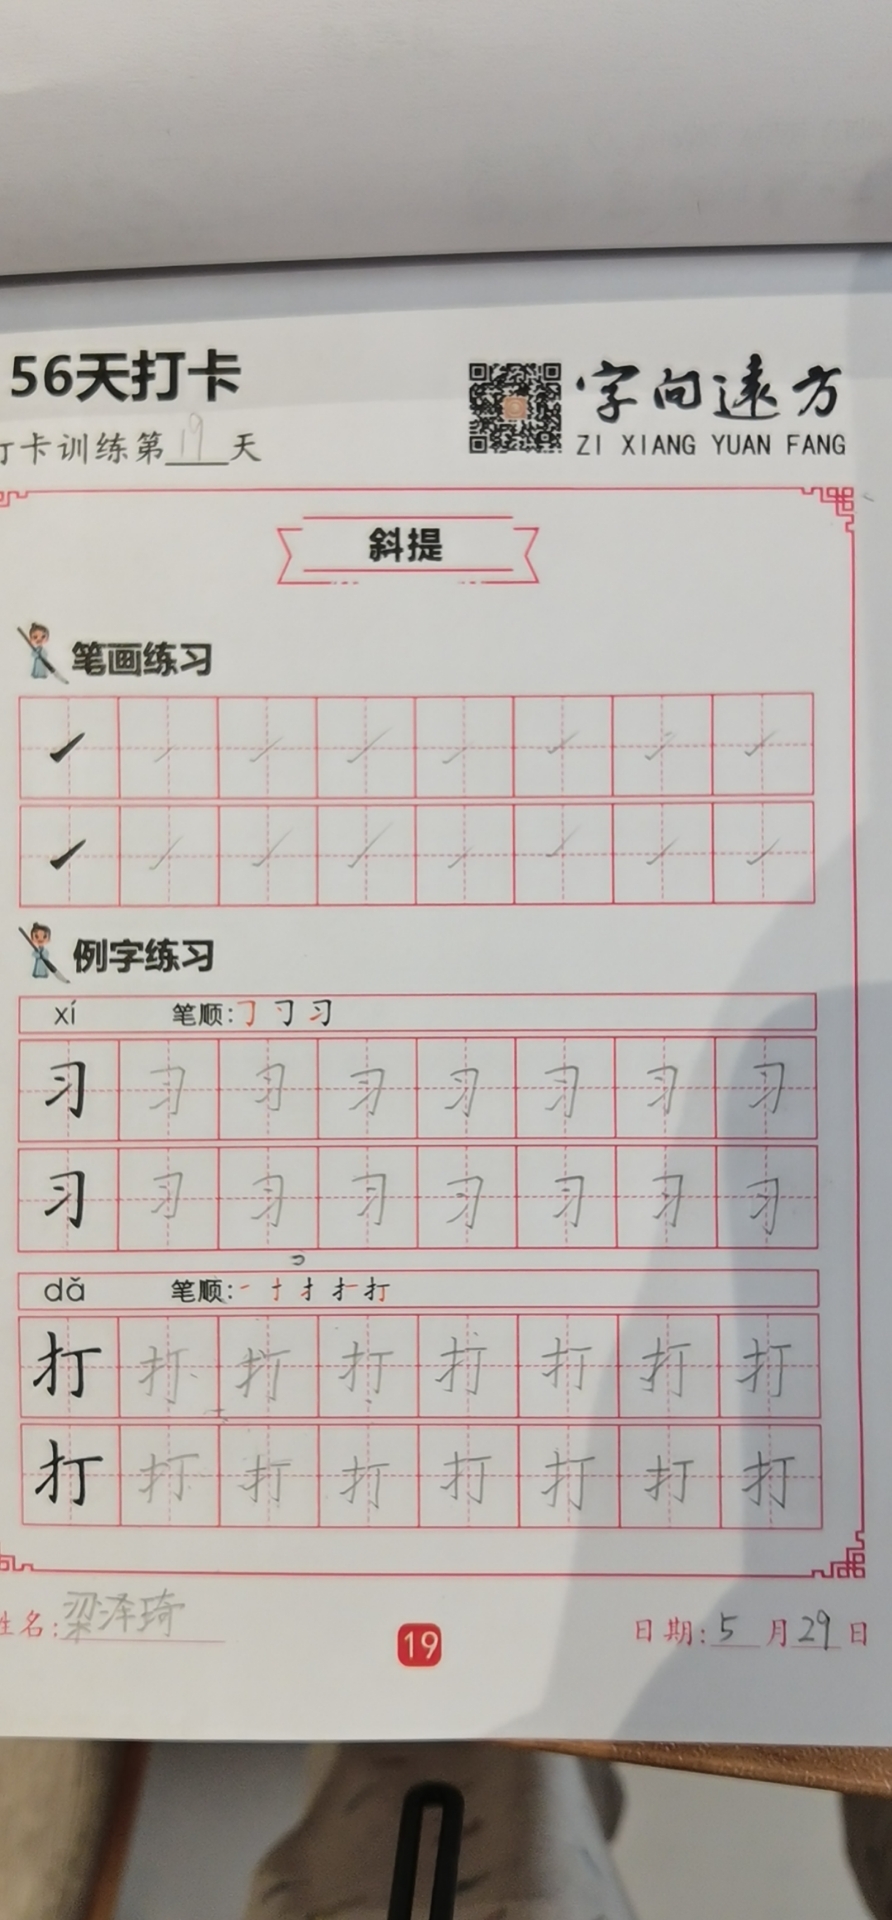 56天打卡
字向遠方
ZI XIANG YUAN FANG
打卡训练第19天
斜提
笔画练习
例字练习
xí 笔顺:
习 习 习 习 习 习 习 习
习 习 习 习 习 习 习 习
dǎ 笔顺:
打 打 打 打 打 打 打 打
打 打 打 打 打 打 打 打
姓名:梁泽琦
19
日期:5月29日